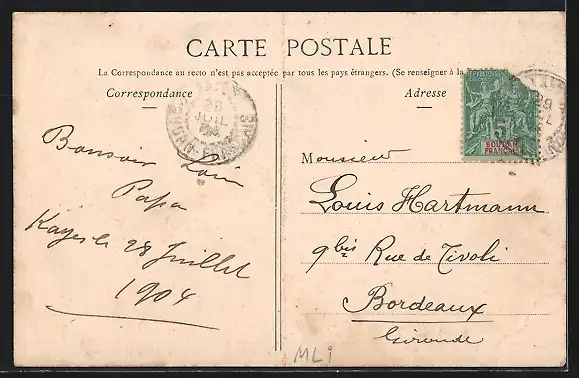 CARTE POSTALE
La Correspondance au recto n'est pas acceptée par tous les pays étrangers. (Se renseigner à la
Correspondance
Adresse
29
JUIL
5
SOUDAN
FRANÇAIS
29
Bonsoir
Papa
Kayes le 28 Juillet
1904
Monsieur
Louis Hartmann
9 bis Rue de Tivoli
Bordeaux
Gironde
MLi